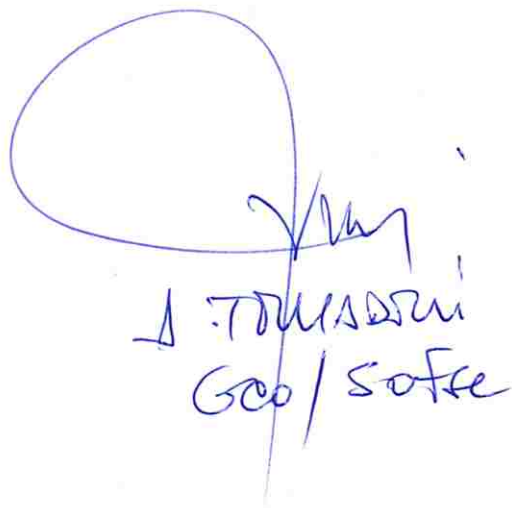 A. TOMADONI
GCO / Sofse